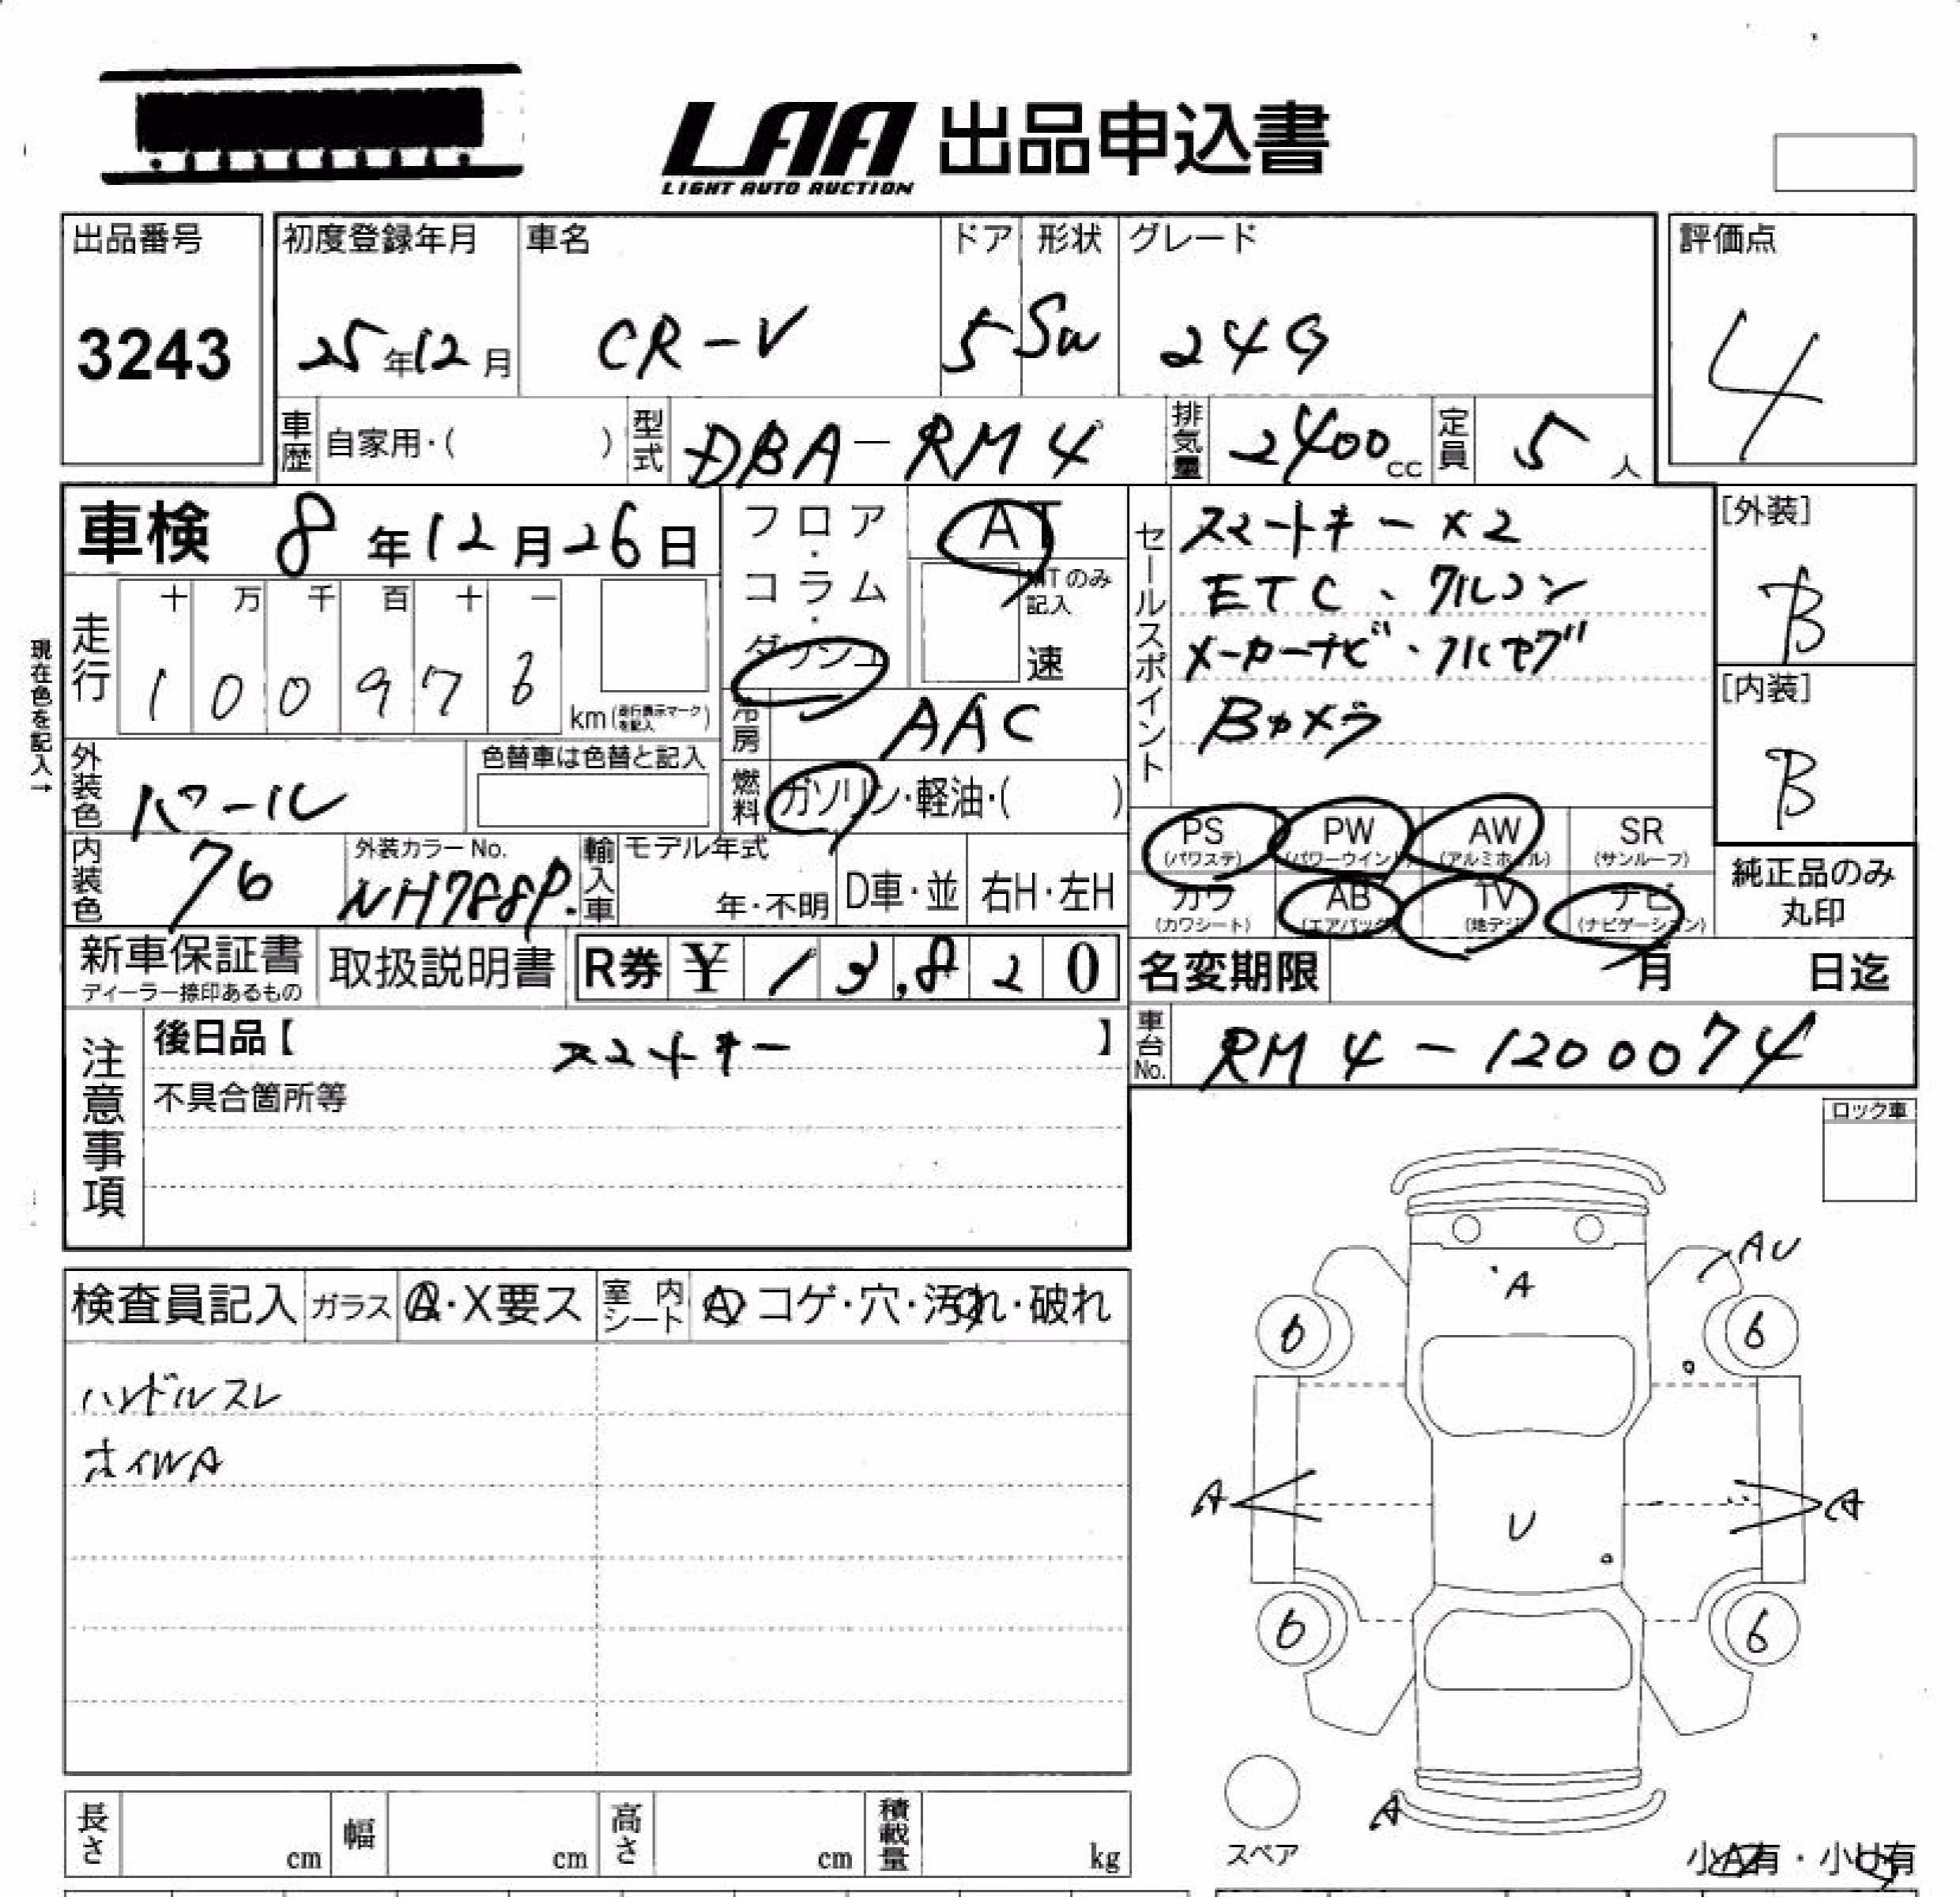 LAA 出品申込書
LIGHT AUTO AUCTION
出品番号
3243
初度登録年月
25年12月
車名
CR-V
ドア
5
形状
SW
グレード
24G
評価点
4
車歴 自家用・( )
型式 DBA-RM4
排気量 2400cc
定員 5人
車検 8年12月26日
走行
十 万 千 百 十 一
1 0 0 9 7 6
km(走行表示マークを記入)
現在色を記入→
フロア・コラム・ダッシュ
AT
MTのみ記入
速
冷房 AAC
燃料 ガソリン・軽油・( )
外装色 パール
色替車は色替と記入
内装色 76
外装カラーNo.
NH788P.
輸入車
モデル年式
年・不明
D車・並
右H・左H
セールスポイント
スマートキー×2
ETC、クルコン
メーカーナビ・フルセグ
Bカメラ
[外装]
B
[内装]
B
PS
(パワステ)
PW
(パワーウインド)
AW
(アルミホイル)
SR
(サンルーフ)
カワ
(カワシート)
AB
(エアバッグ)
TV
(地デジ)
ナビ
(ナビゲーション)
純正品のみ
丸印
新車保証書
ディーラー捺印あるもの
取扱説明書
R券 ¥ 13,820
名変期限 月 日迄
注意事項
後日品【 スマートキー 】
不具合箇所等
車台No. RM4-1200074
ロック車
検査員記入
ガラス A・X要ス
室内シート A コゲ・穴・汚れ・破れ
ハンドルスレ
ホイWA
AU
A
6
6
A
A
U
6
6
スペア
A
小A有・小U有
長さ cm
幅 cm
高さ cm
積載量 kg